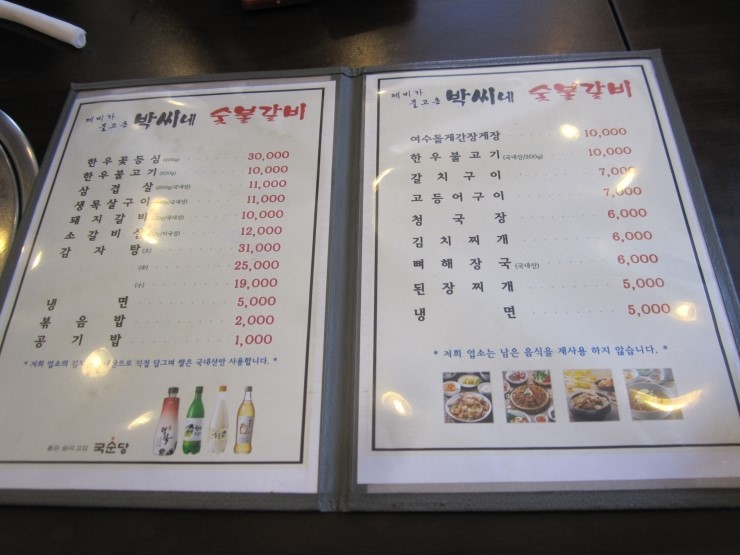 제비가
물고온 박씨네 숯불갈비
한우꽃등심(200g) 30,000
한우불고기(200g) 10,000
삼겹살(200g/국내산) 11,000
생목살구이 11,000
돼지갈비 10,000
소갈비살 12,000
감자탕(大) 31,000
(中) 25,000
(小) 19,000
냉면 5,000
볶음밥 2,000
공기밥 1,000
* 저희 업소의 직접 담그며 쌀은 국내산만 사용합니다. *
국순당
제비가
물고온 박씨네 숯불갈비
여수돌게간장게장 10,000
한우불고기(국내산/200g) 10,000
갈치구이 7,000
고등어구이 7,000
청국장 6,000
김치찌개 6,000
뼈해장국(국내산) 6,000
된장찌개 5,000
냉면 5,000
* 저희 업소는 남은 음식을 재사용 하지 않습니다. *